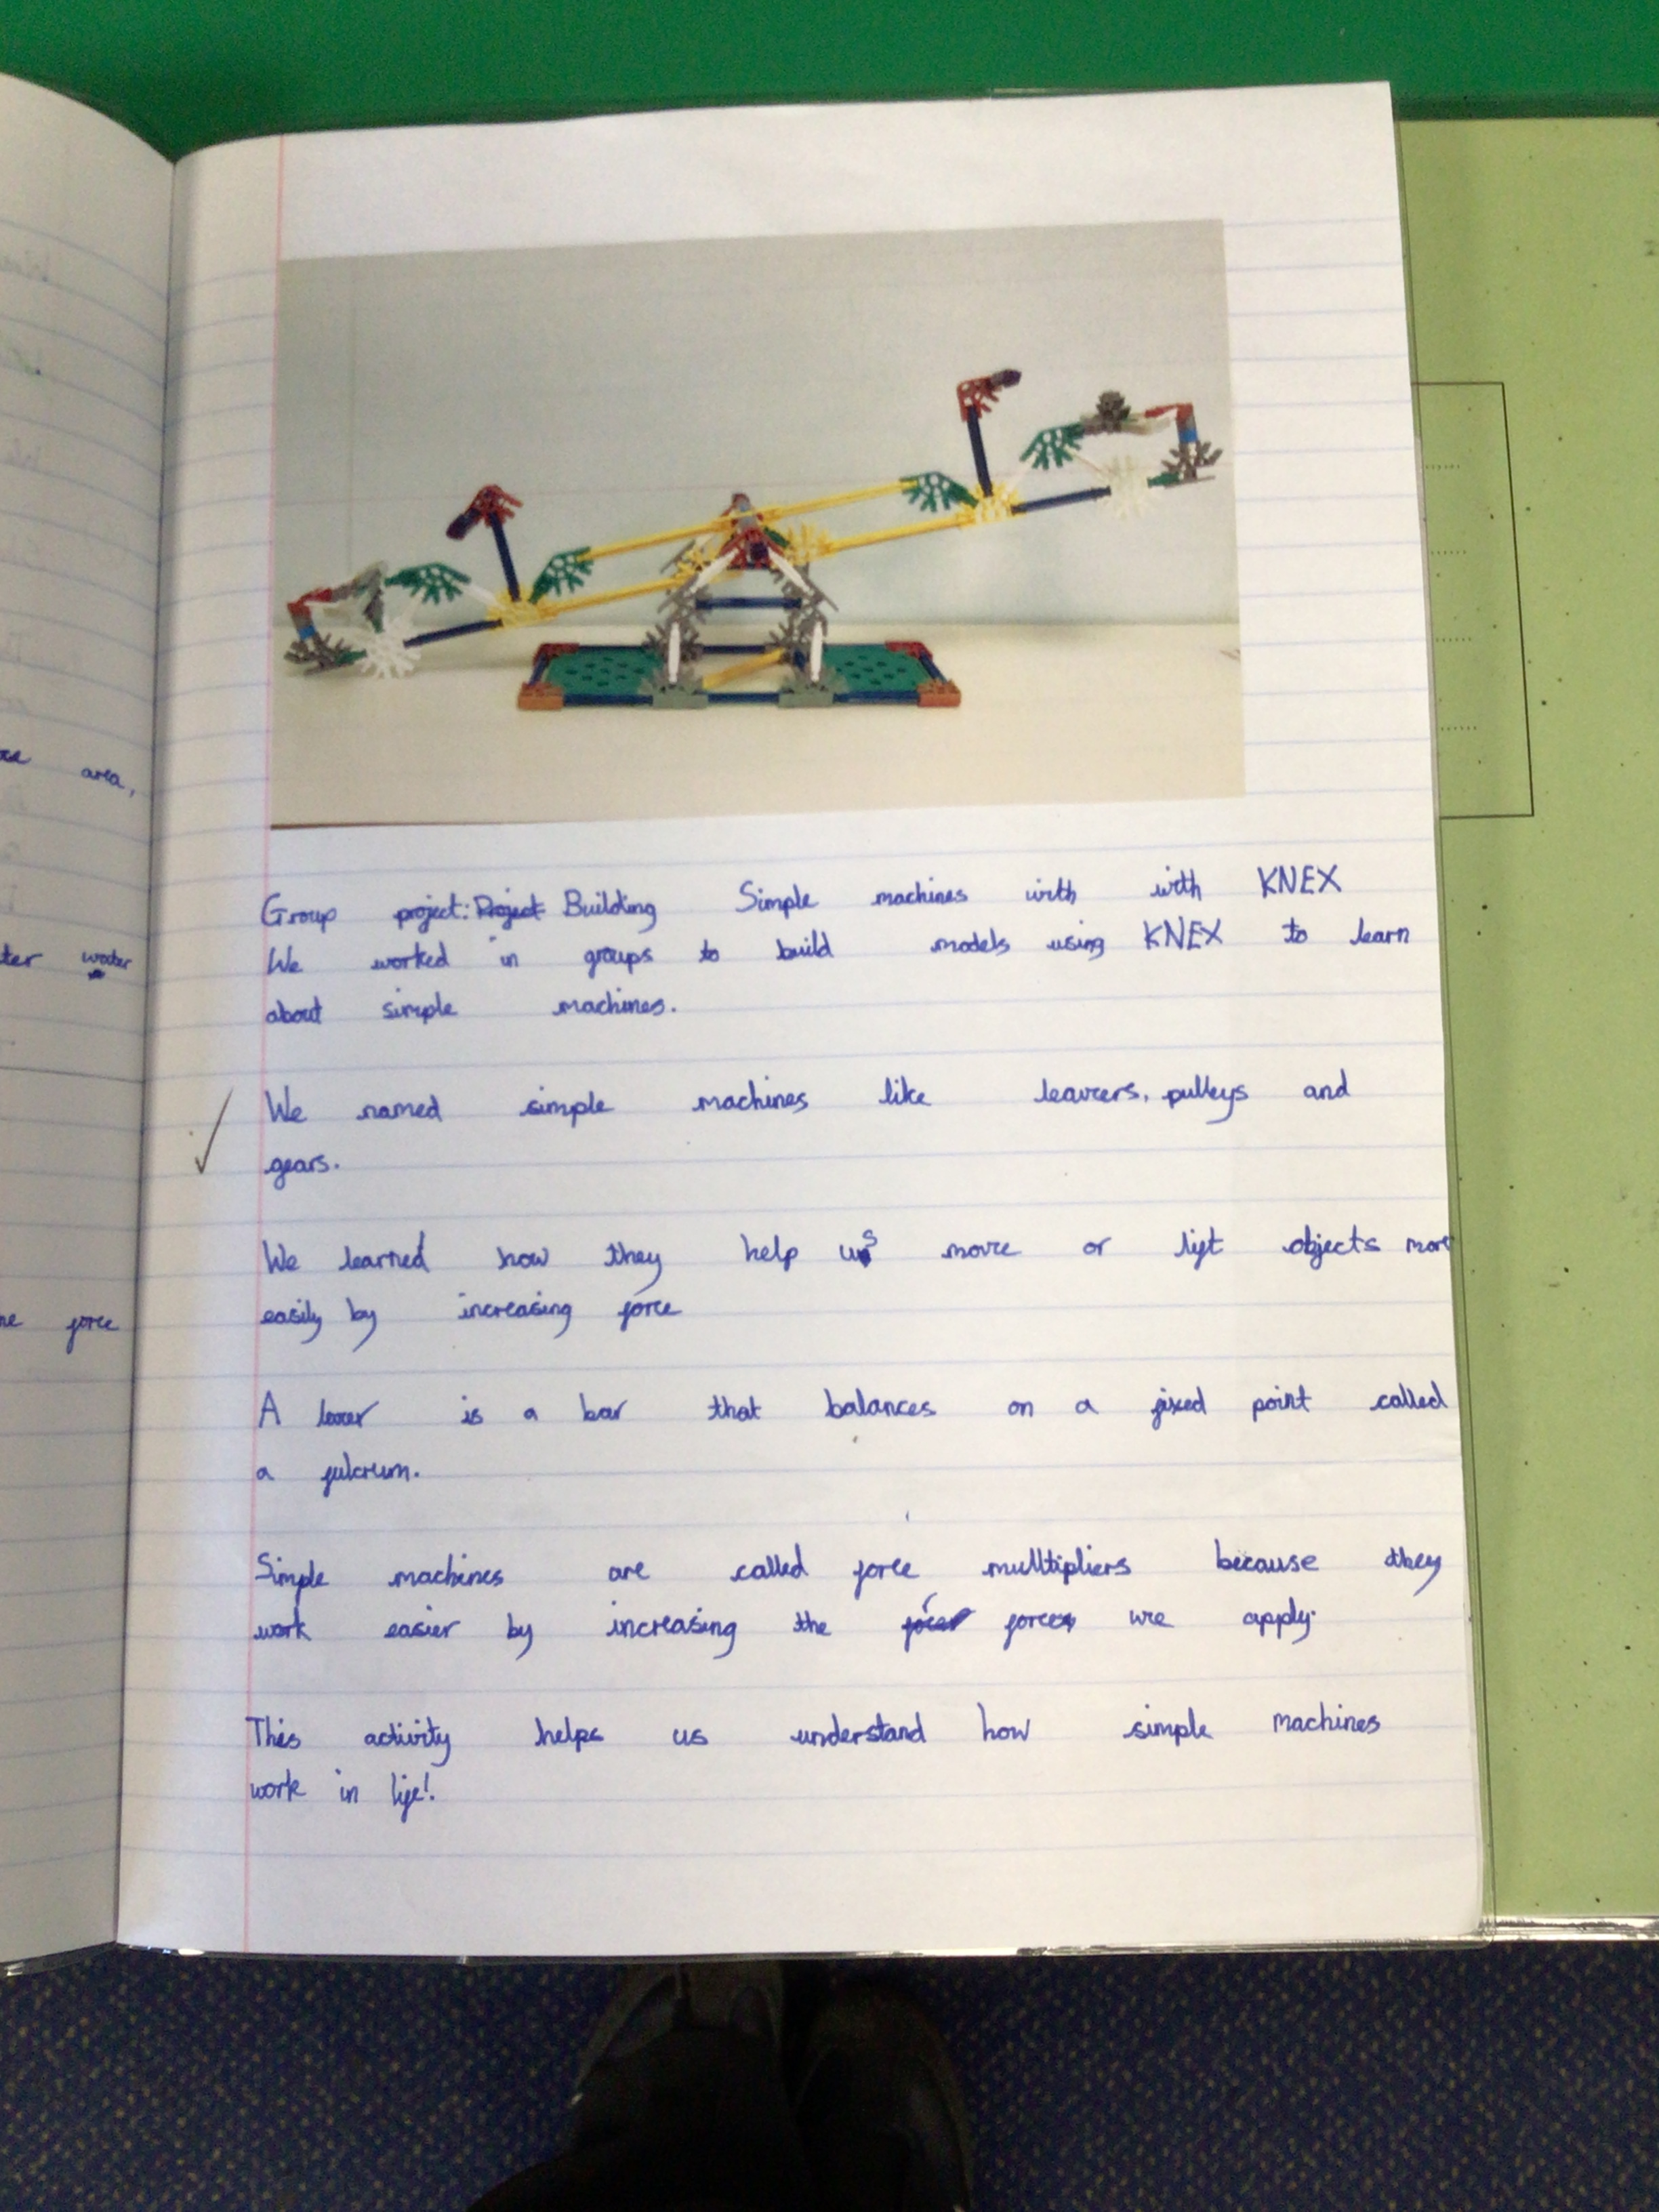 area,
water
force
Group project: Project Building Simple machines with with KNEX
We worked in groups to build models using KNEX to learn
about simple machines.
We named simple machines like leavers, pulleys and
gears.
We learned how they help us move or lift objects more
easily by increasing force
A lever is a bar that balances on a fixed point called
a fulcrum.
Simple machines are called force mulltipliers because they
work easier by increasing the forces we apply.
This activity helps us understand how simple machines
work in life!